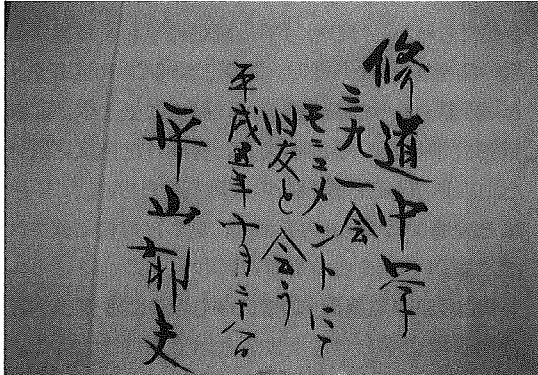 修道中学
三九一会
モニュメントにて
旧友と会う
平成五年十月二十八日
平山郁夫